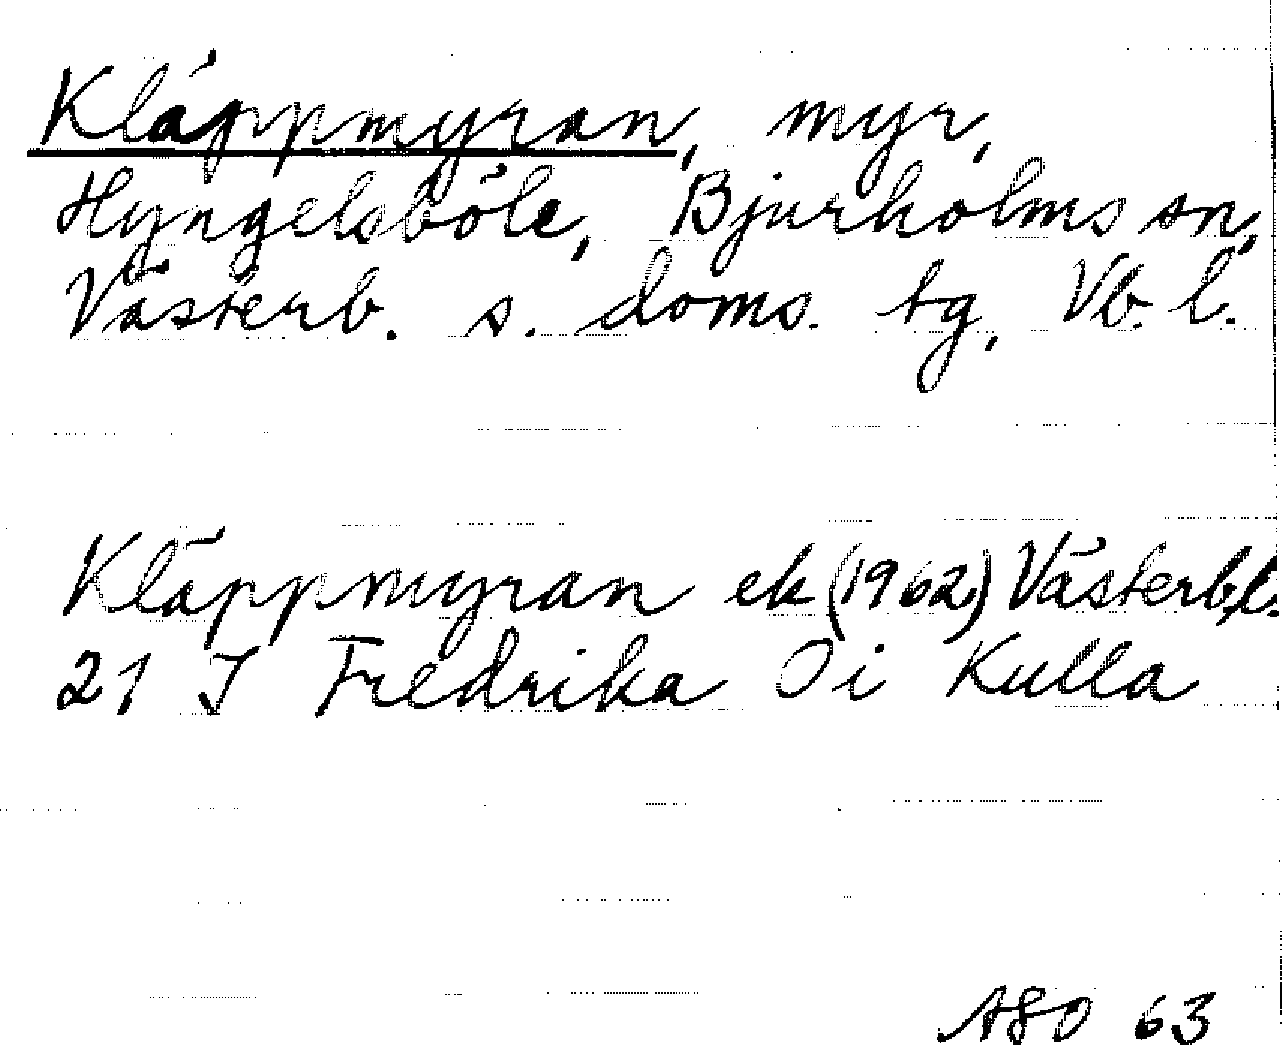 Kläppmyran, myr,
Hyngelsböle, Bjurholms sn,
Västerb. s. doms. tg, Vb. l.
Kläppmyran ek (1962) Västerb. l.
21 J Fredrika Oi Kulla
ASO 63